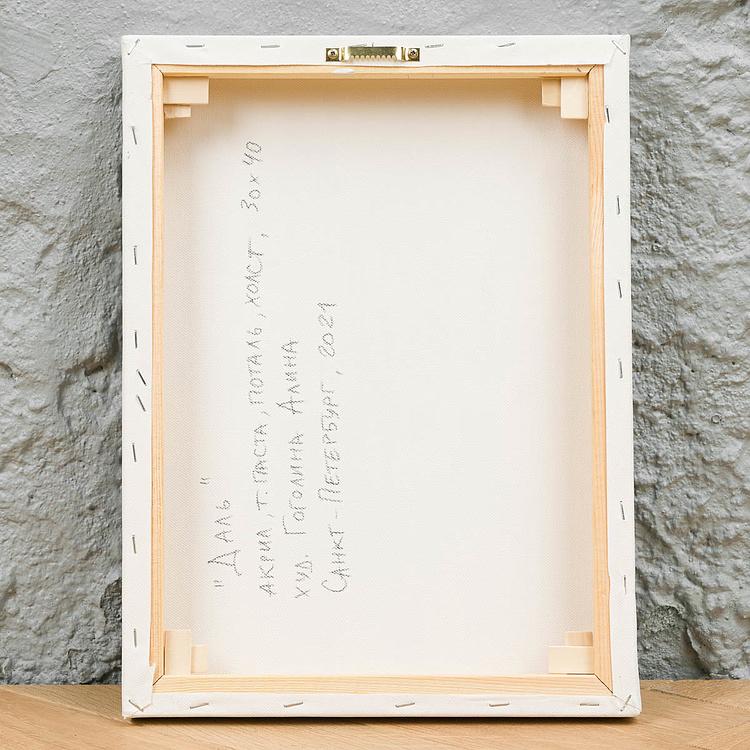 "Даль"
акрил, т.паста, поталь, холст, 30х40
худ. Гоголина Алина
Санкт-Петербург, 2021